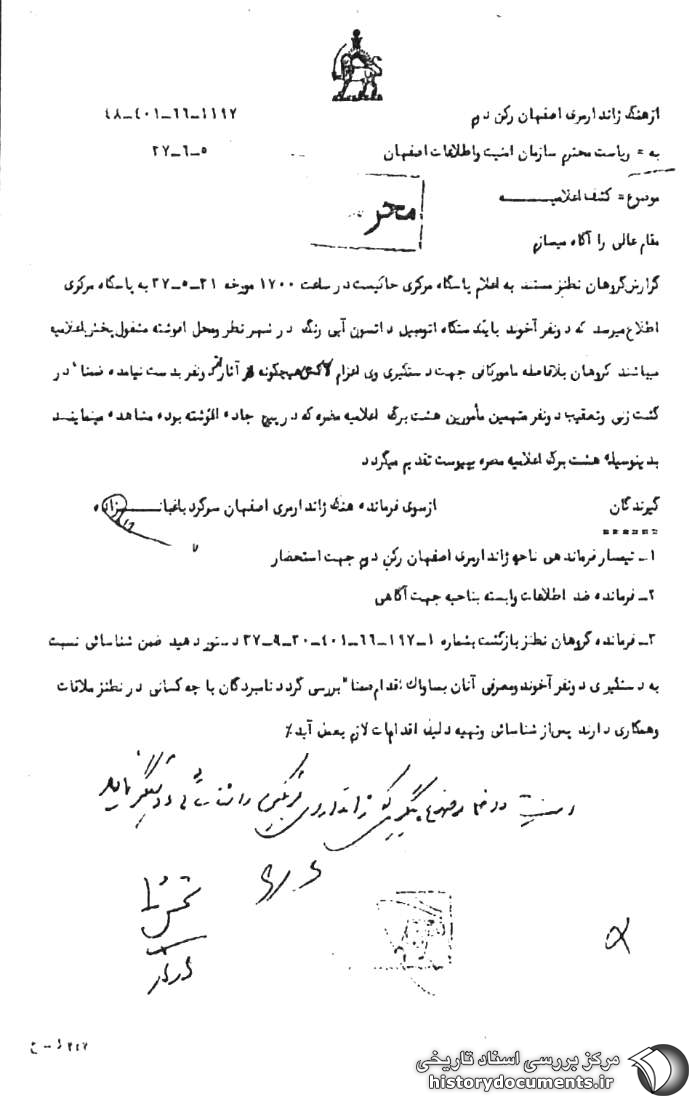 ازهنگ ژاندارمری اصفهان رکن دوم ۴۸-۴۰۱-۶۶-۱۱۹۷
به = ریاست محترم سازمان امنیت واطلاعات اصفهان ۵-۶-۳۷
موضوع = کشف اعلامیه
محر
مقام عالی را آگاه میسازم
گزارش گروهان نطنز مستند به اعلام پاسگاه مرکزی حاکیست در ساعت ۱۷۰۰ مورخه ۳۱-۵-۳۷ به پاسگاه مرکزی
اطلاع میرسد که دونفر آخوند بایکدستگاه اتومبیل داتسون آبی رنگ در شهر نطنز ومحل اموشته مشغول پخش اعلامیه
میباشند گروهان بلافاصله مامورکافی جهت دستگیری وی اعزام لاکن هیچگونه آثار دونفر بدست نیامده ضمنا" در
گشت زنی وتعقیب دونفر متهمین مأمورین هشت برگ اعلامیه مضره که در پیچ جاده بوده مشاهده مینمایند
بدینوسیله هشت برگ اعلامیه مضره بپیوست تقدیم میگردد
گیرندگان ازسوی فرمانده هنگ ژاندارمری اصفهان سرگرد باغبانزاده
۱- تیمسار فرماندهی ناحیه ژاندارمری اصفهان رکن دوم جهت استحضار
۲- فرمانده ضد اطلاعات وابسته بناحیه جهت آگاهی
۳- فرمانده گروهان نطنز بازگشت بشماره ۱-۱۹۷-۶۶-۴۰۱-۳۰-۹-۳۷ دستور دهید ضمن شناسائی نسبت
به دستگیری دونفر آخوند ومعرفی آنان بساواک اقدام ضمنا" بررسی گردد نامبردگان با چه کسانی در نطنز ملاقات
وهمکاری دارند پس از شناسائی وتهیه دلیل اقدامات لازم بعمل آید٪
۲۴۷
مرکز بررسی اسناد تاریخی
historydocuments.ir